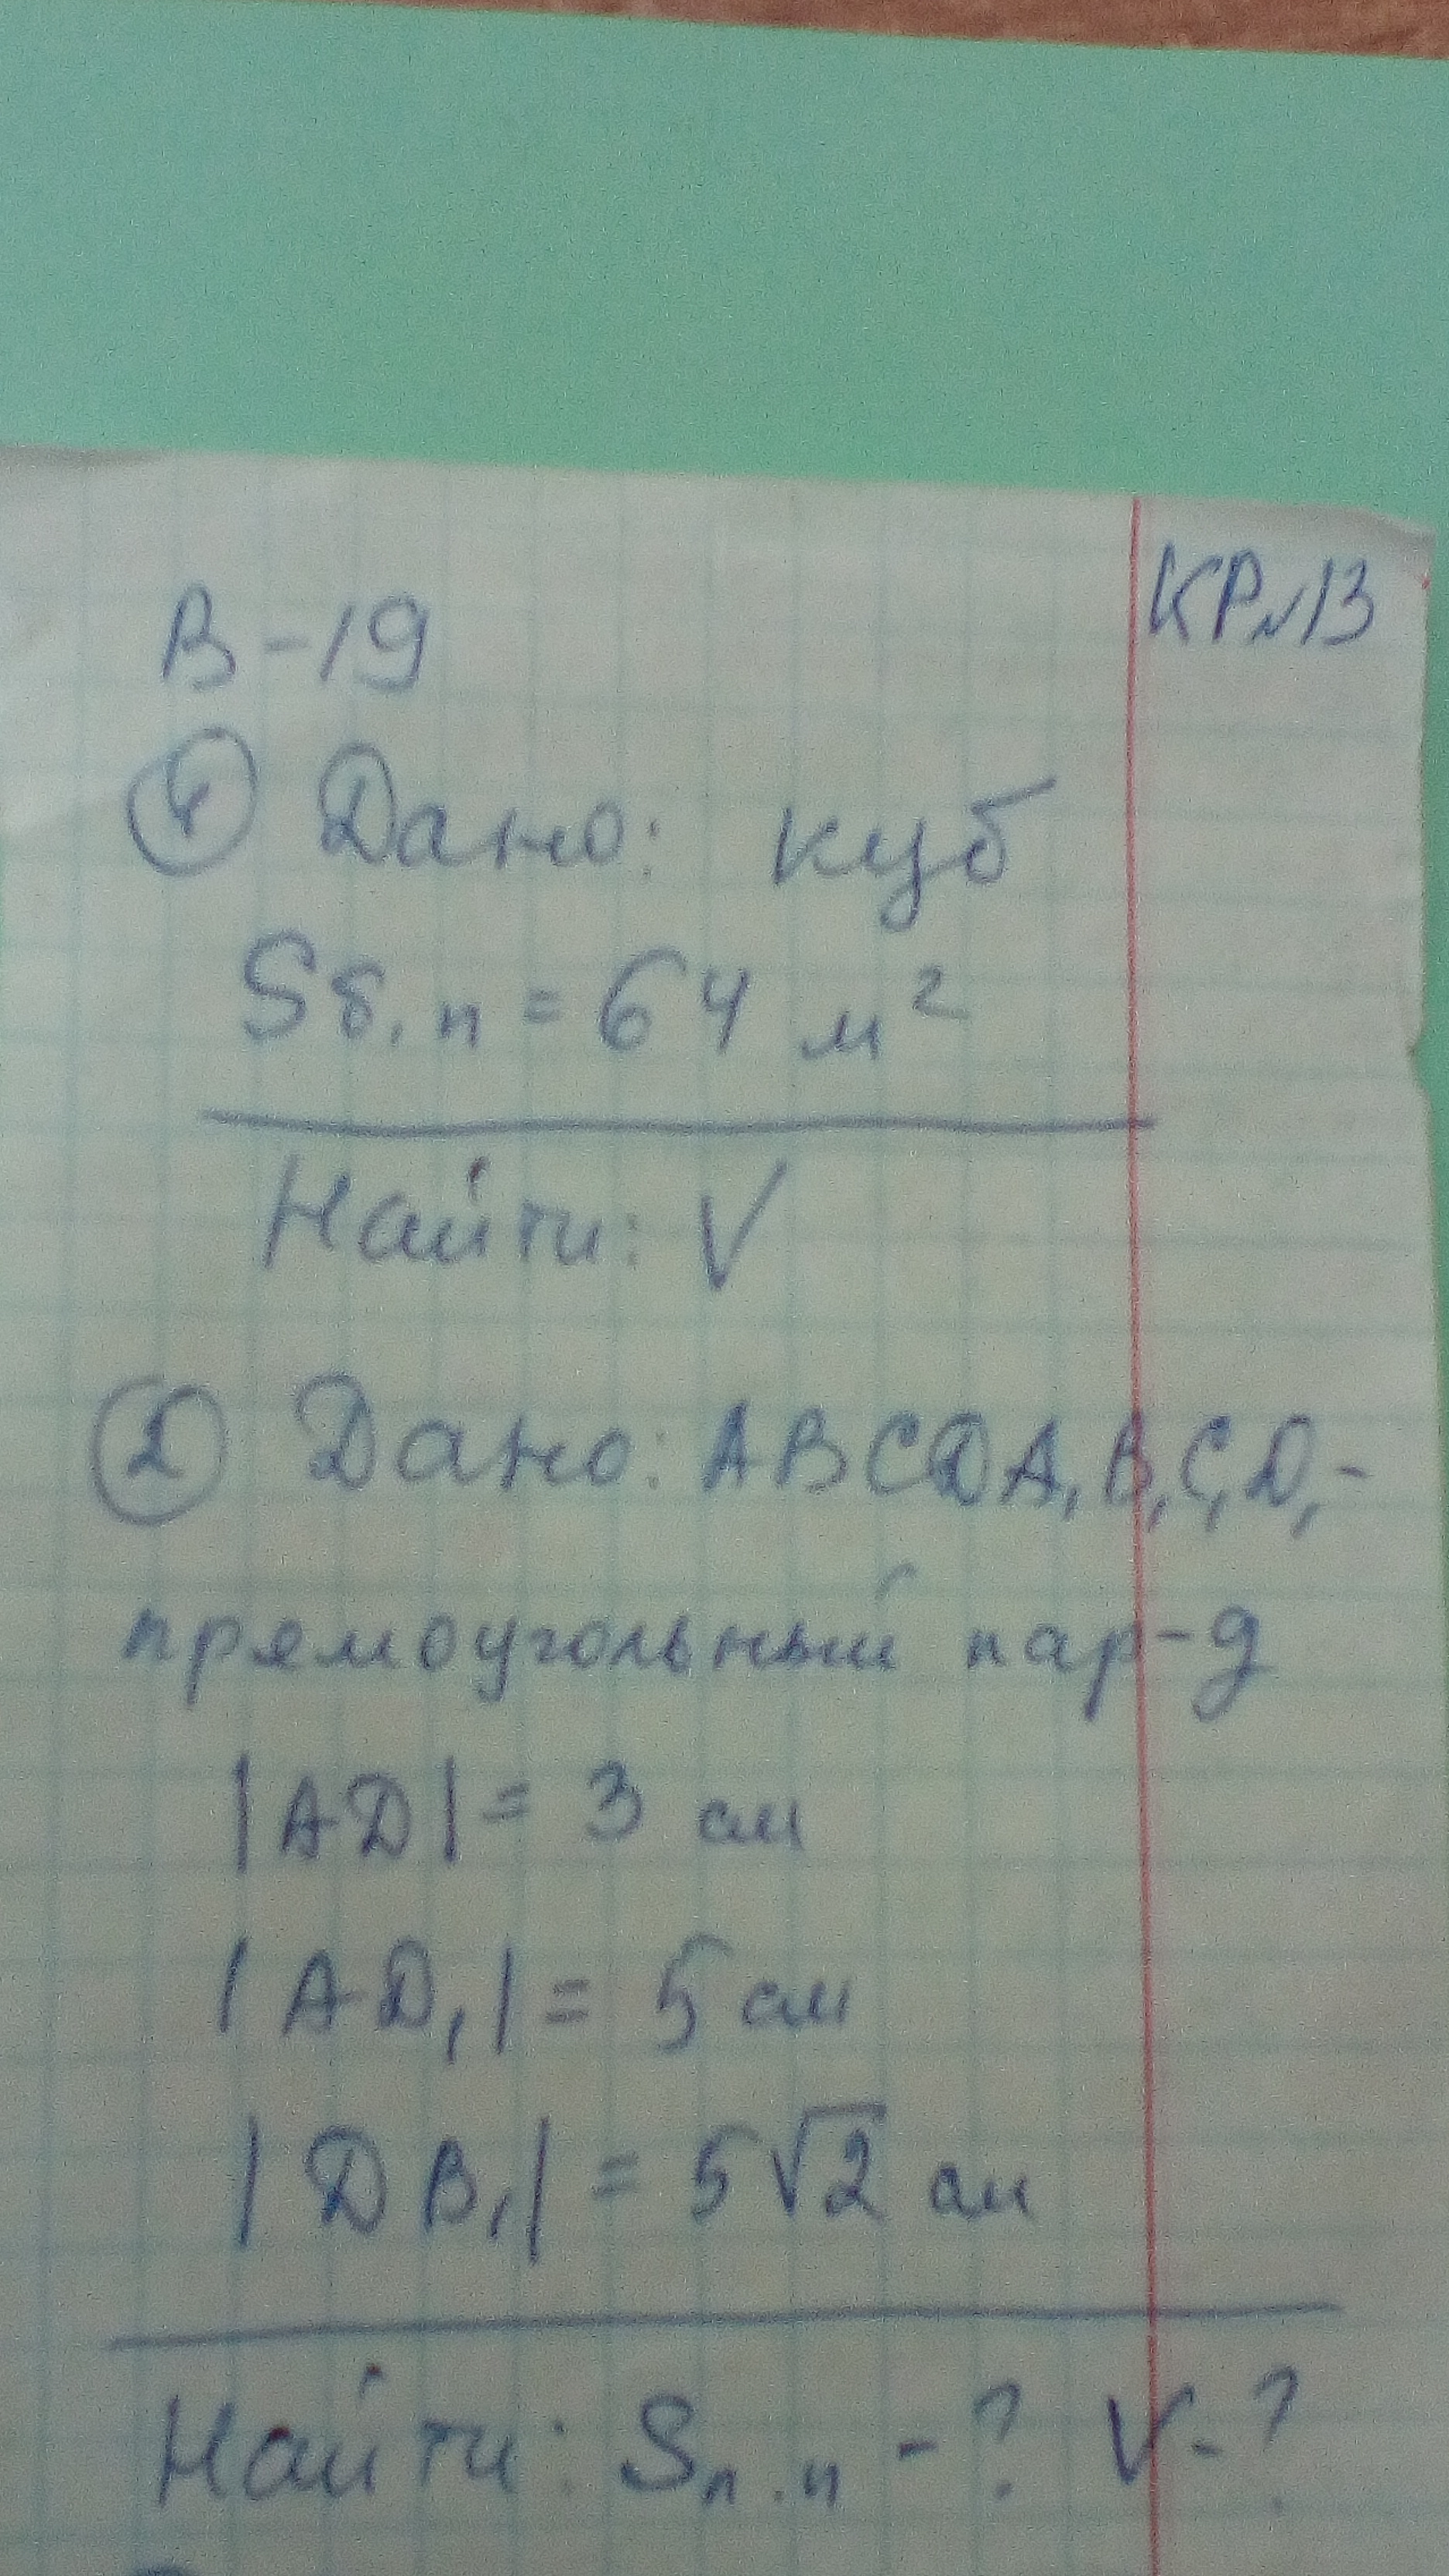 КР№13
В-19
① Дано: куб
Sб.п = 64 м²
Найти: V
② Дано: ABCDA₁B₁C₁D₁-
прямоугольный пар-д
|AD| = 3 см
|AD₁| = 5 см
|DB₁| = 5√2 см
Найти: Sп.п - ? V - ?